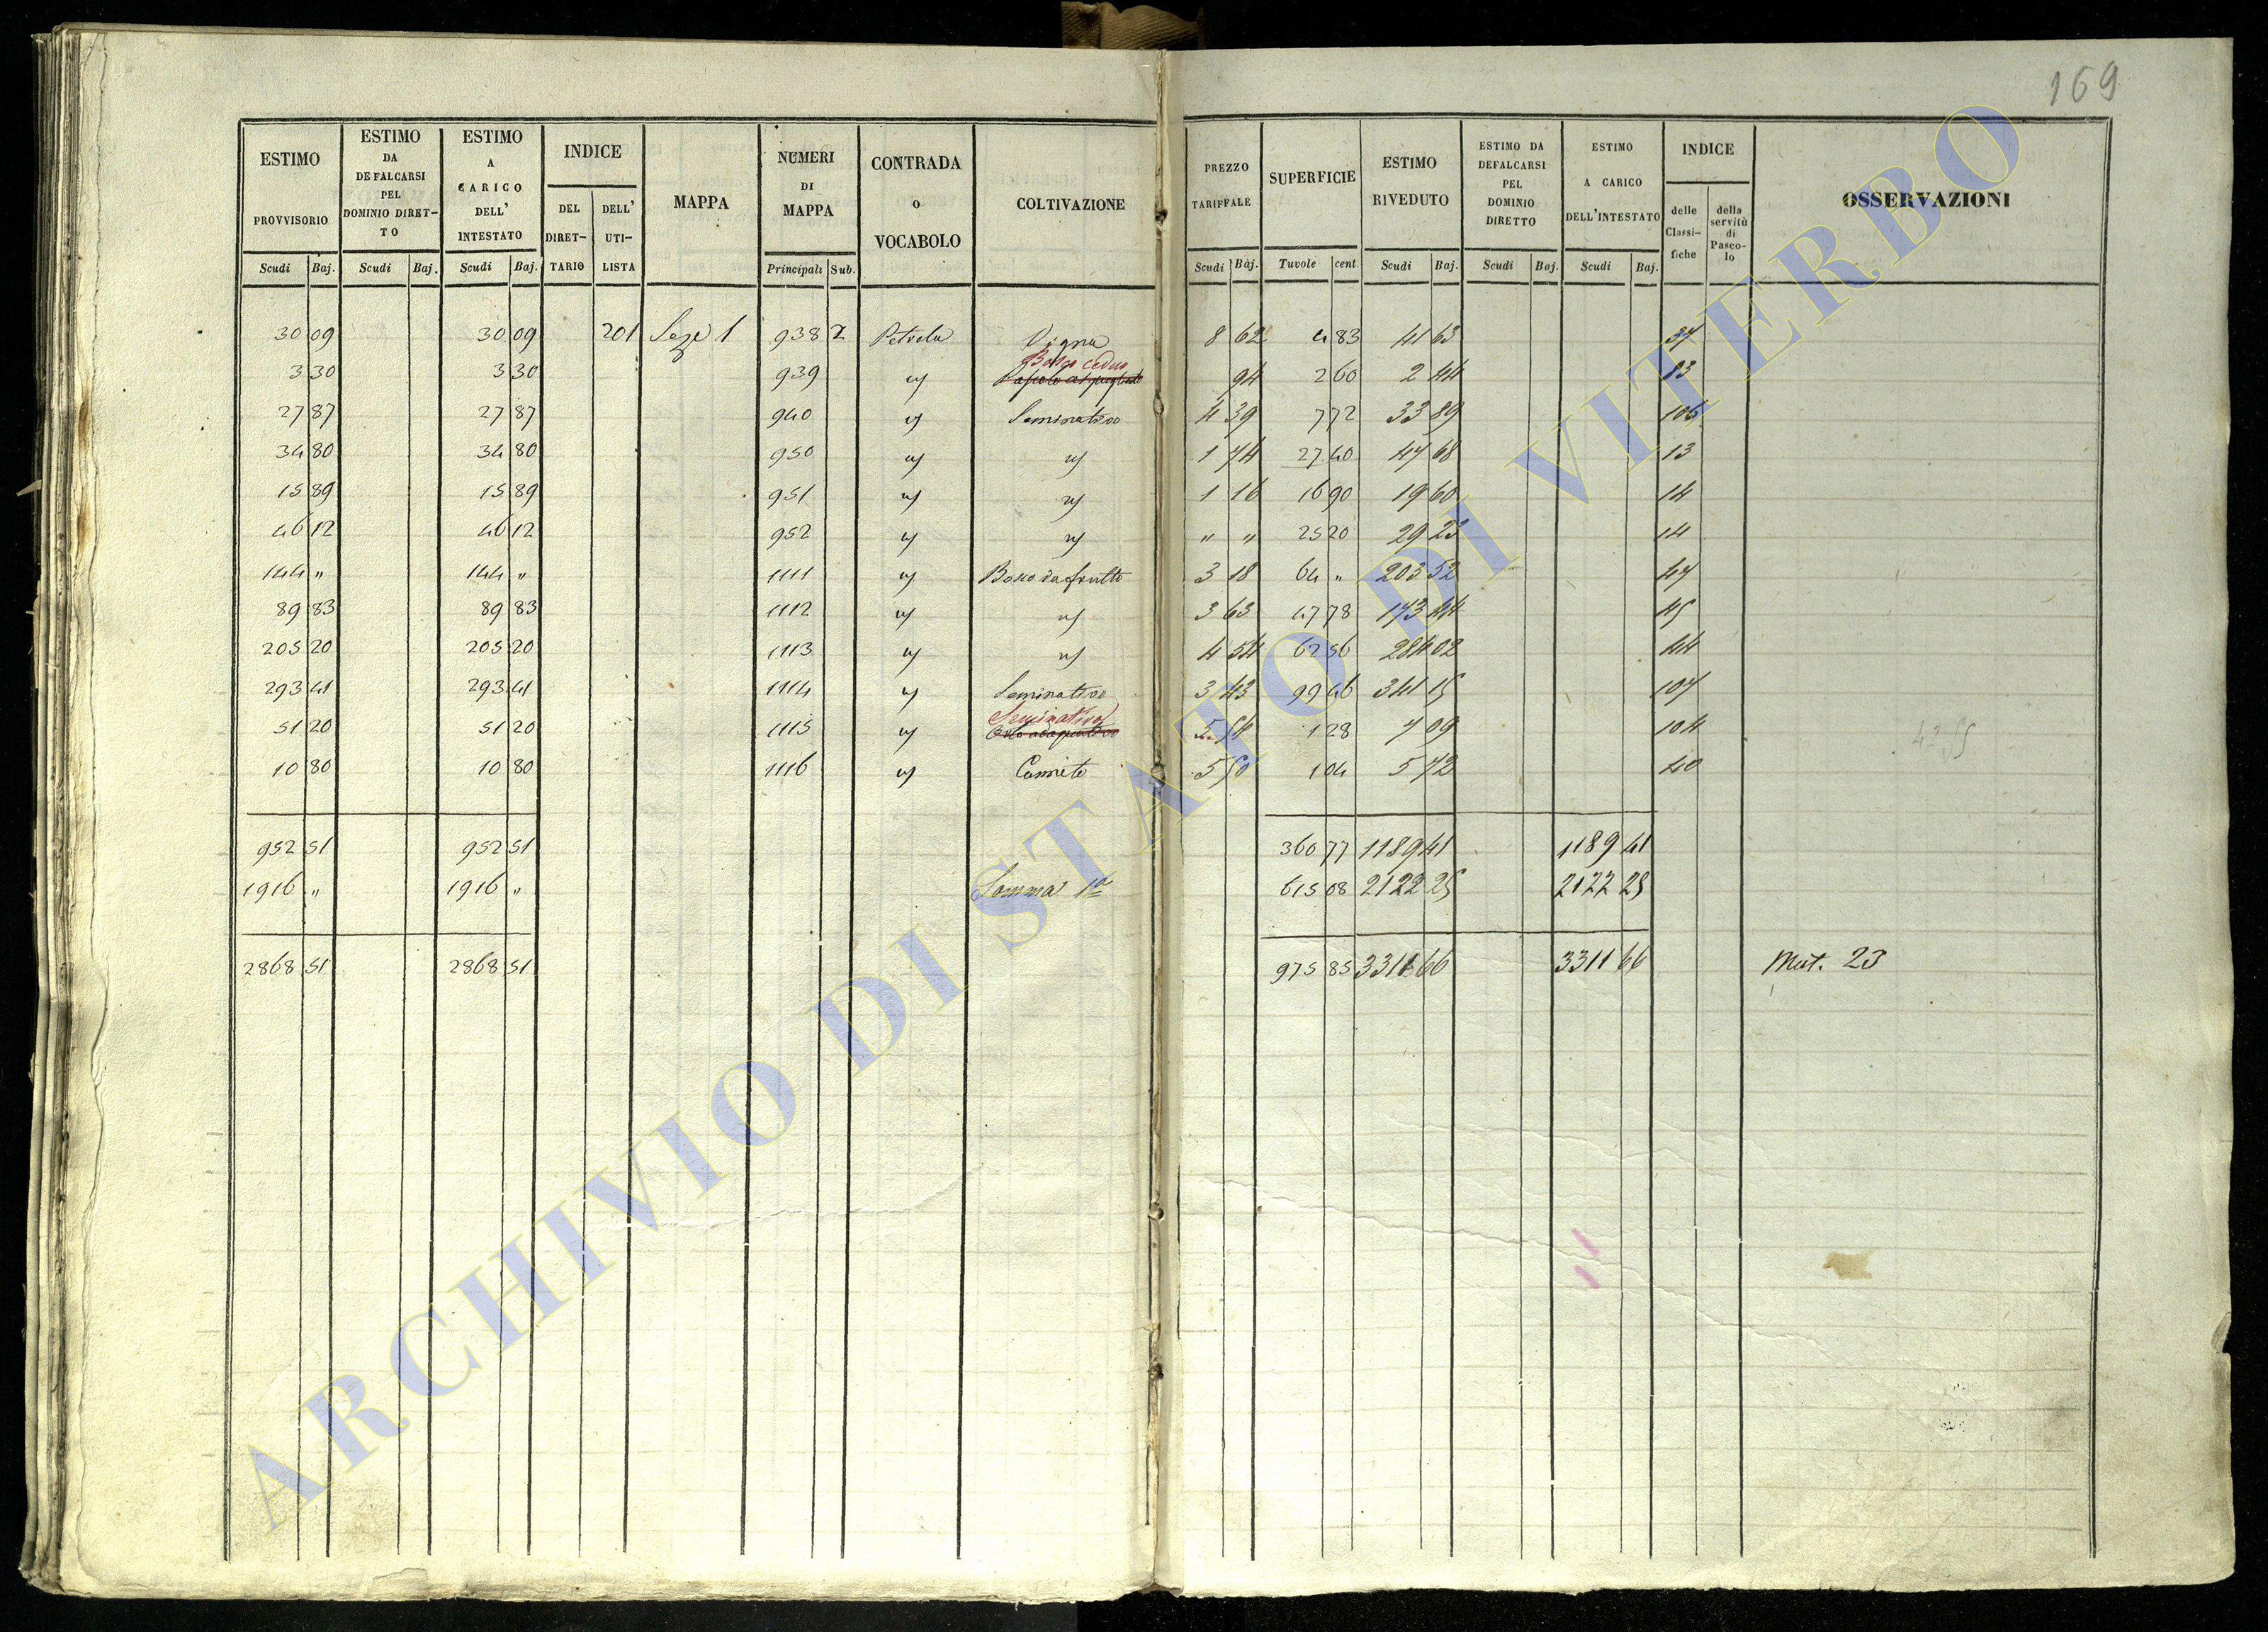 169
ESTIMO PROVVISORIO Scudi Baj. | ESTIMO DA DEFALCARSI PEL DOMINIO DIRETTO Scudi Baj. | ESTIMO A CARICO DELL' INTESTATO Scudi Baj. | INDICE DEL DIRETTARIO DELL' UTILISTA | MAPPA | NUMERI DI MAPPA Principali Sub. | CONTRADA o VOCABOLO | COLTIVAZIONE | PREZZO TARIFFALE Scudi Baj. | SUPERFICIE Tavole cent. | ESTIMO RIVEDUTO Scudi Baj. | ESTIMO DA DEFALCARSI PEL DOMINIO DIRETTO Scudi Baj. | ESTIMO A CARICO DELL'INTESTATO Scudi Baj. | INDICE delle Classifiche della servitù di Pascolo | OSSERVAZIONI
30 09 30 09 201 Seze 1 938 2 Petrela Vigna 8 62 4 83 41 63 37
Bosco ceduo
3 30 3 30 939 " 94 2 60 2 44 83
27 87 27 87 940 " Seminativo 4 39 7 72 33 89 106
34 80 34 80 950 " " 1 74 27 40 47 68 13
15 89 15 89 951 " " 1 16 16 90 19 60 14
46 12 46 12 952 " " " " 25 20 29 23 14
144 " 144 " 1111 " Bosco da frutto 3 18 64 " 203 52 47
89 83 89 83 1112 " " 3 63 47 78 173 44 45
205 20 205 20 1113 " " 4 54 62 56 284 02 44
293 41 293 41 1114 " Seminativo 3 43 99 46 341 15 107
Seminativo
51 20 51 20 1115 " 5 54 1 28 7 09 104
10 80 10 80 1116 " Canneto 5 50 1 04 5 72 40
952 51 952 51 360 77 1189 41 1189 41
1916 " 1916 " Somma 1a 615 08 2122 25 2122 25
2868 51 2868 51 975 85 3311 66 3311 66 Mut. 23
ARCHIVIO DI STATO DI VITERBO